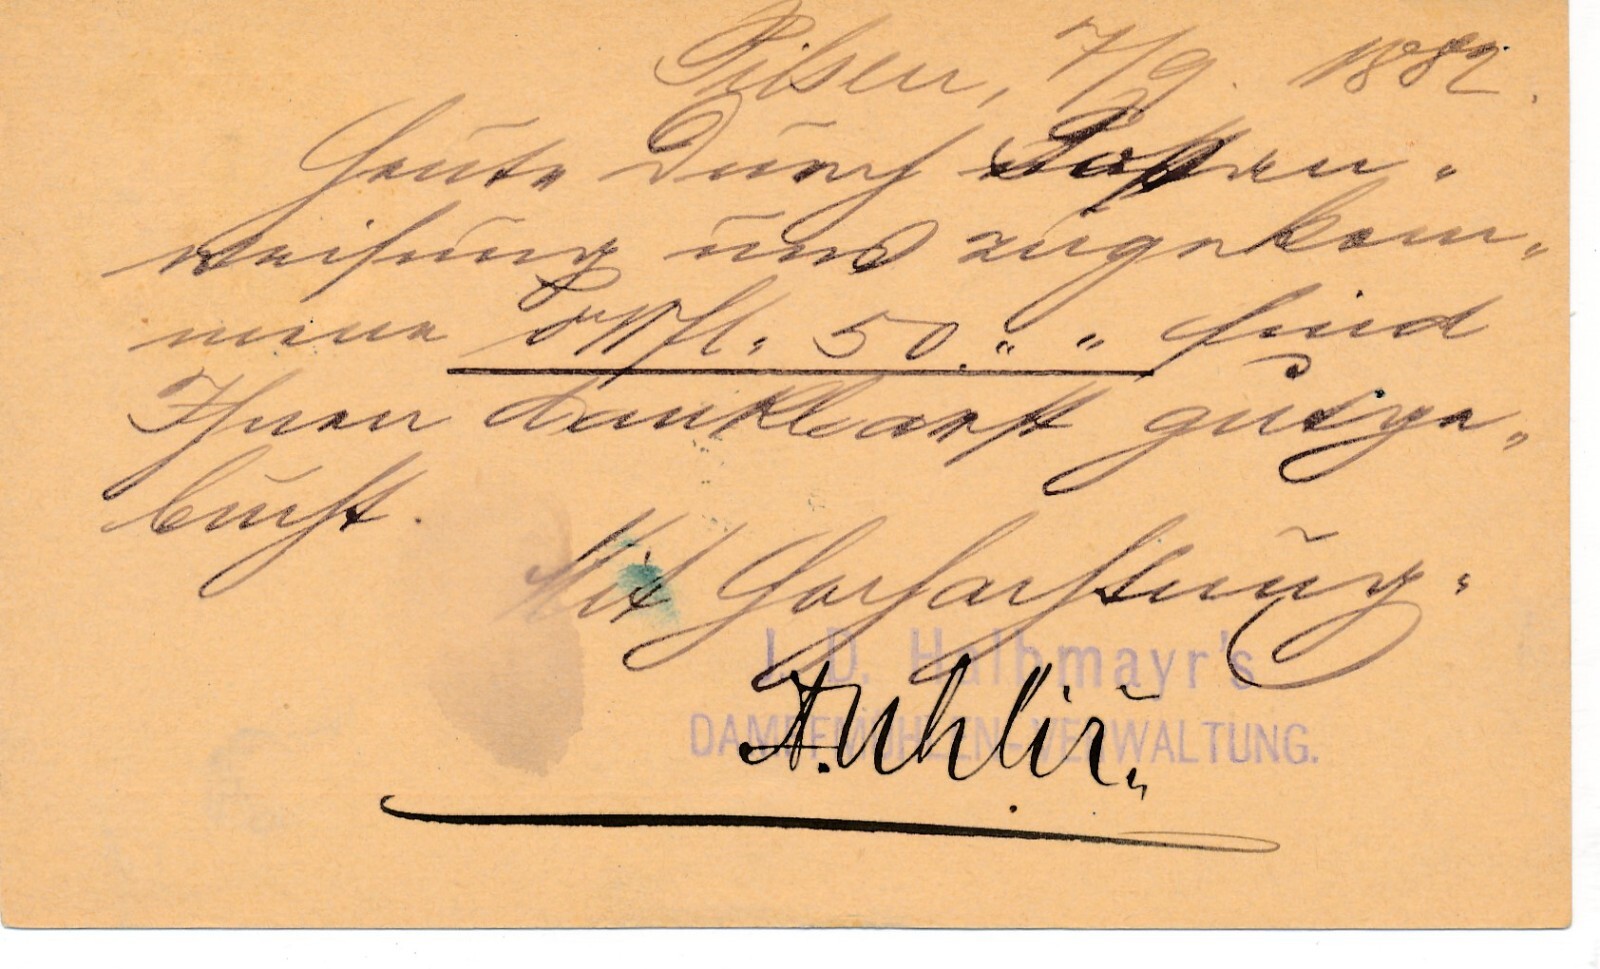 Pilsen, 7/9. 1882.
Heute durch
weisung uns zugekom„
mene ö W fl. 50.„ „ sind
Ihnen dankbarst gutge„
bucht.
Mit Hochachtung.
J. D. Halbmayr's
DAMPFMÜHLEN-VERWALTUNG.
A. Uhlíř.